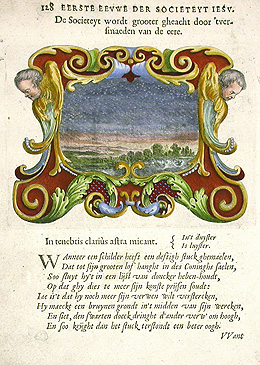 128 EERSTE EEUWE DER SOCIETEYT IESV.
De Societeyt wordt grooter gheacht door 'tver-
smaeden van de eere.
In tenebris clariùs astra micant. { In't duyster
is luyster.
WAnneer een schilder heeft een deftigh stuck ghemaelen,
Dat tot sijn grooten lof hanght in des Coninghs saelen,
Soo sluyt hy't in een lijst van doncker heben-houdt,
Op dat ghy dies te meer sijn konste prijsen soudt:
Iae is't dat hy noch meer sijn verwen wilt verstercken,
Hy maeckt een bruynen grondt in't midden van sijn wercken,
En siet, den swarten doeck dringht d'ander verw' om hoogh,
En soo krijght dan het stuck terstondt een beter oogh.
VVant